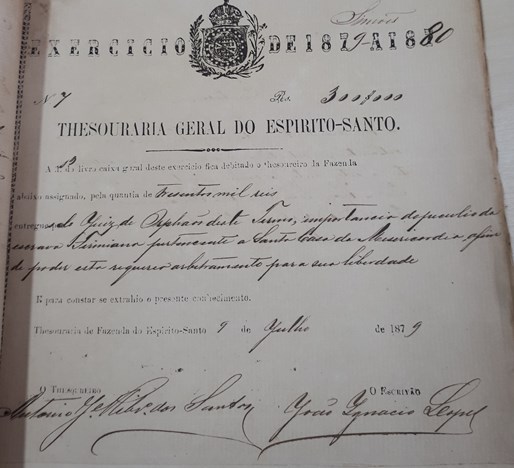 EXERCICIO DE 1879 A 1880
N 7 Rs. 300$000
THESOURARIA GERAL DO ESPIRITO-SANTO.
A do livro caixa geral deste exercicio fica debitado o thesoureiro da Fazenda
abaixo assignado, pela quantia de Tresentos mil reis
entregues pelo Juiz de Orphãos deste Termo, importancia do peculio da
escrava pertencente a Santa Casa da Misericordia afim
de poder esta requerer arbitramento para sua liberdade
E para constar se extrahio o presente conhecimento.
Thesouraria de Fazenda do Espirito-Santo 9 de Julho de 1879
O THESOUREIRO O ESCRIVÃO
Antonio dos Santos João Ignacio